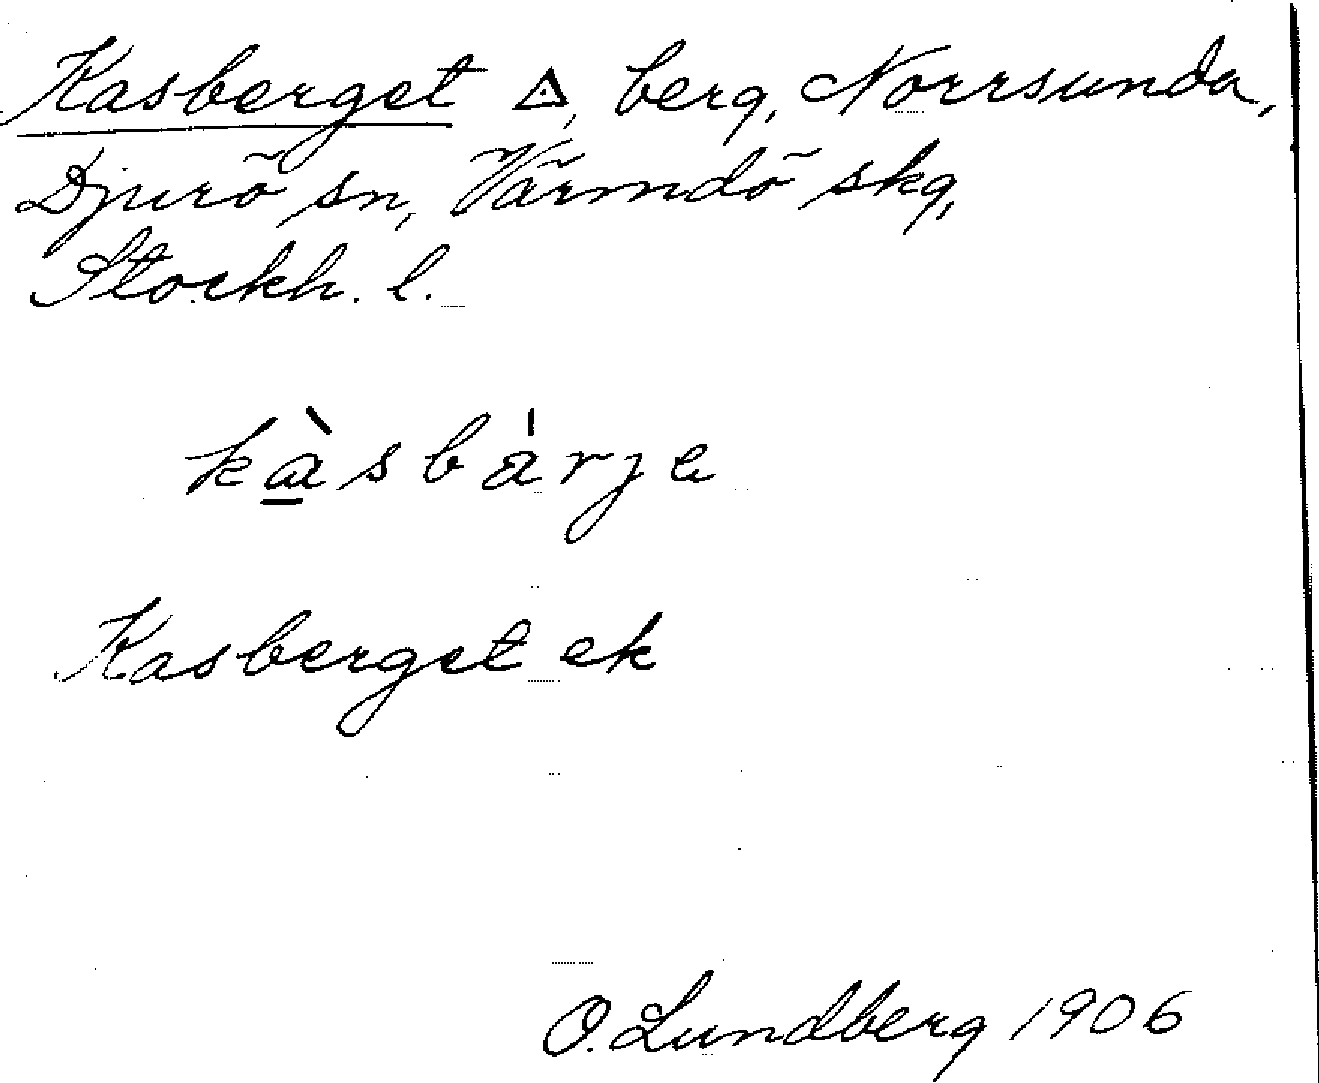 Kasberget △, berg, Norrsunda,
Djurö sn, Värmdö skg,
Stockh. l.
kàsbárje
Kasberget ek
O. Lundberg 1906